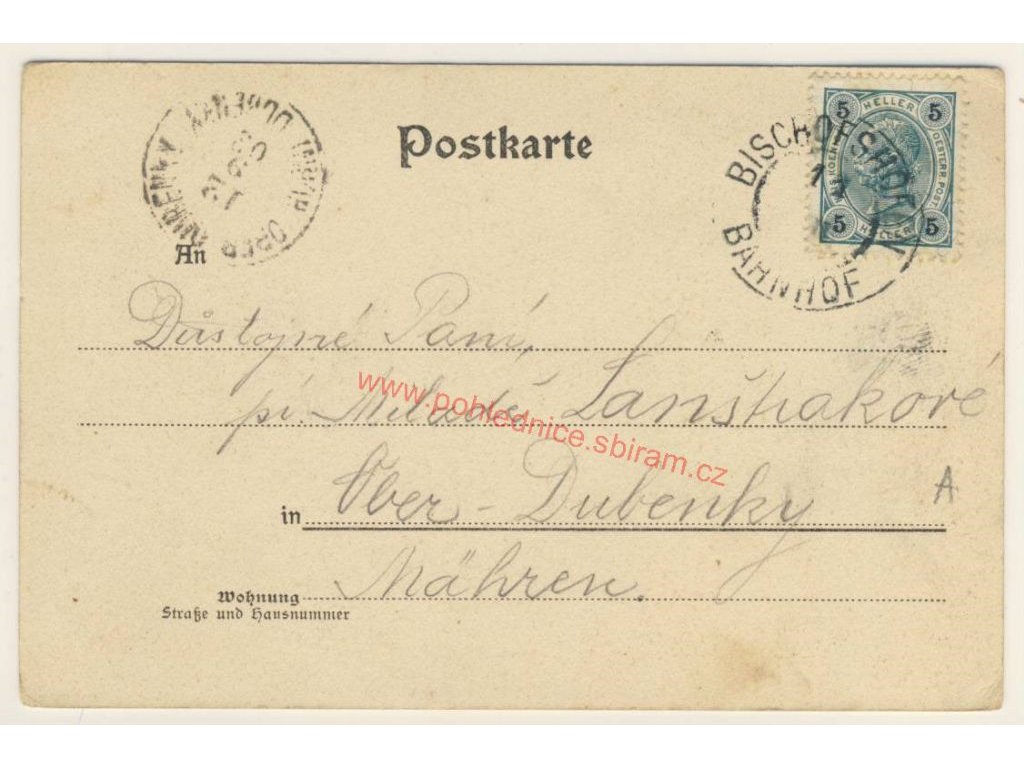 Postkarte
5 HELLER 5
OESTERR. POST
5 HELLER 5
BISCHOFSHOFEN
BAHNHOF
OBER DUBENKY
HORNÍ DUBENKY
An
Důstojné Paní,
pí. Miladě Lanštiakové
in Ober-Dubenky
Mähren.
Wohnung
Straße und Hausnummer
A
www.pohlednice.sbiram.cz